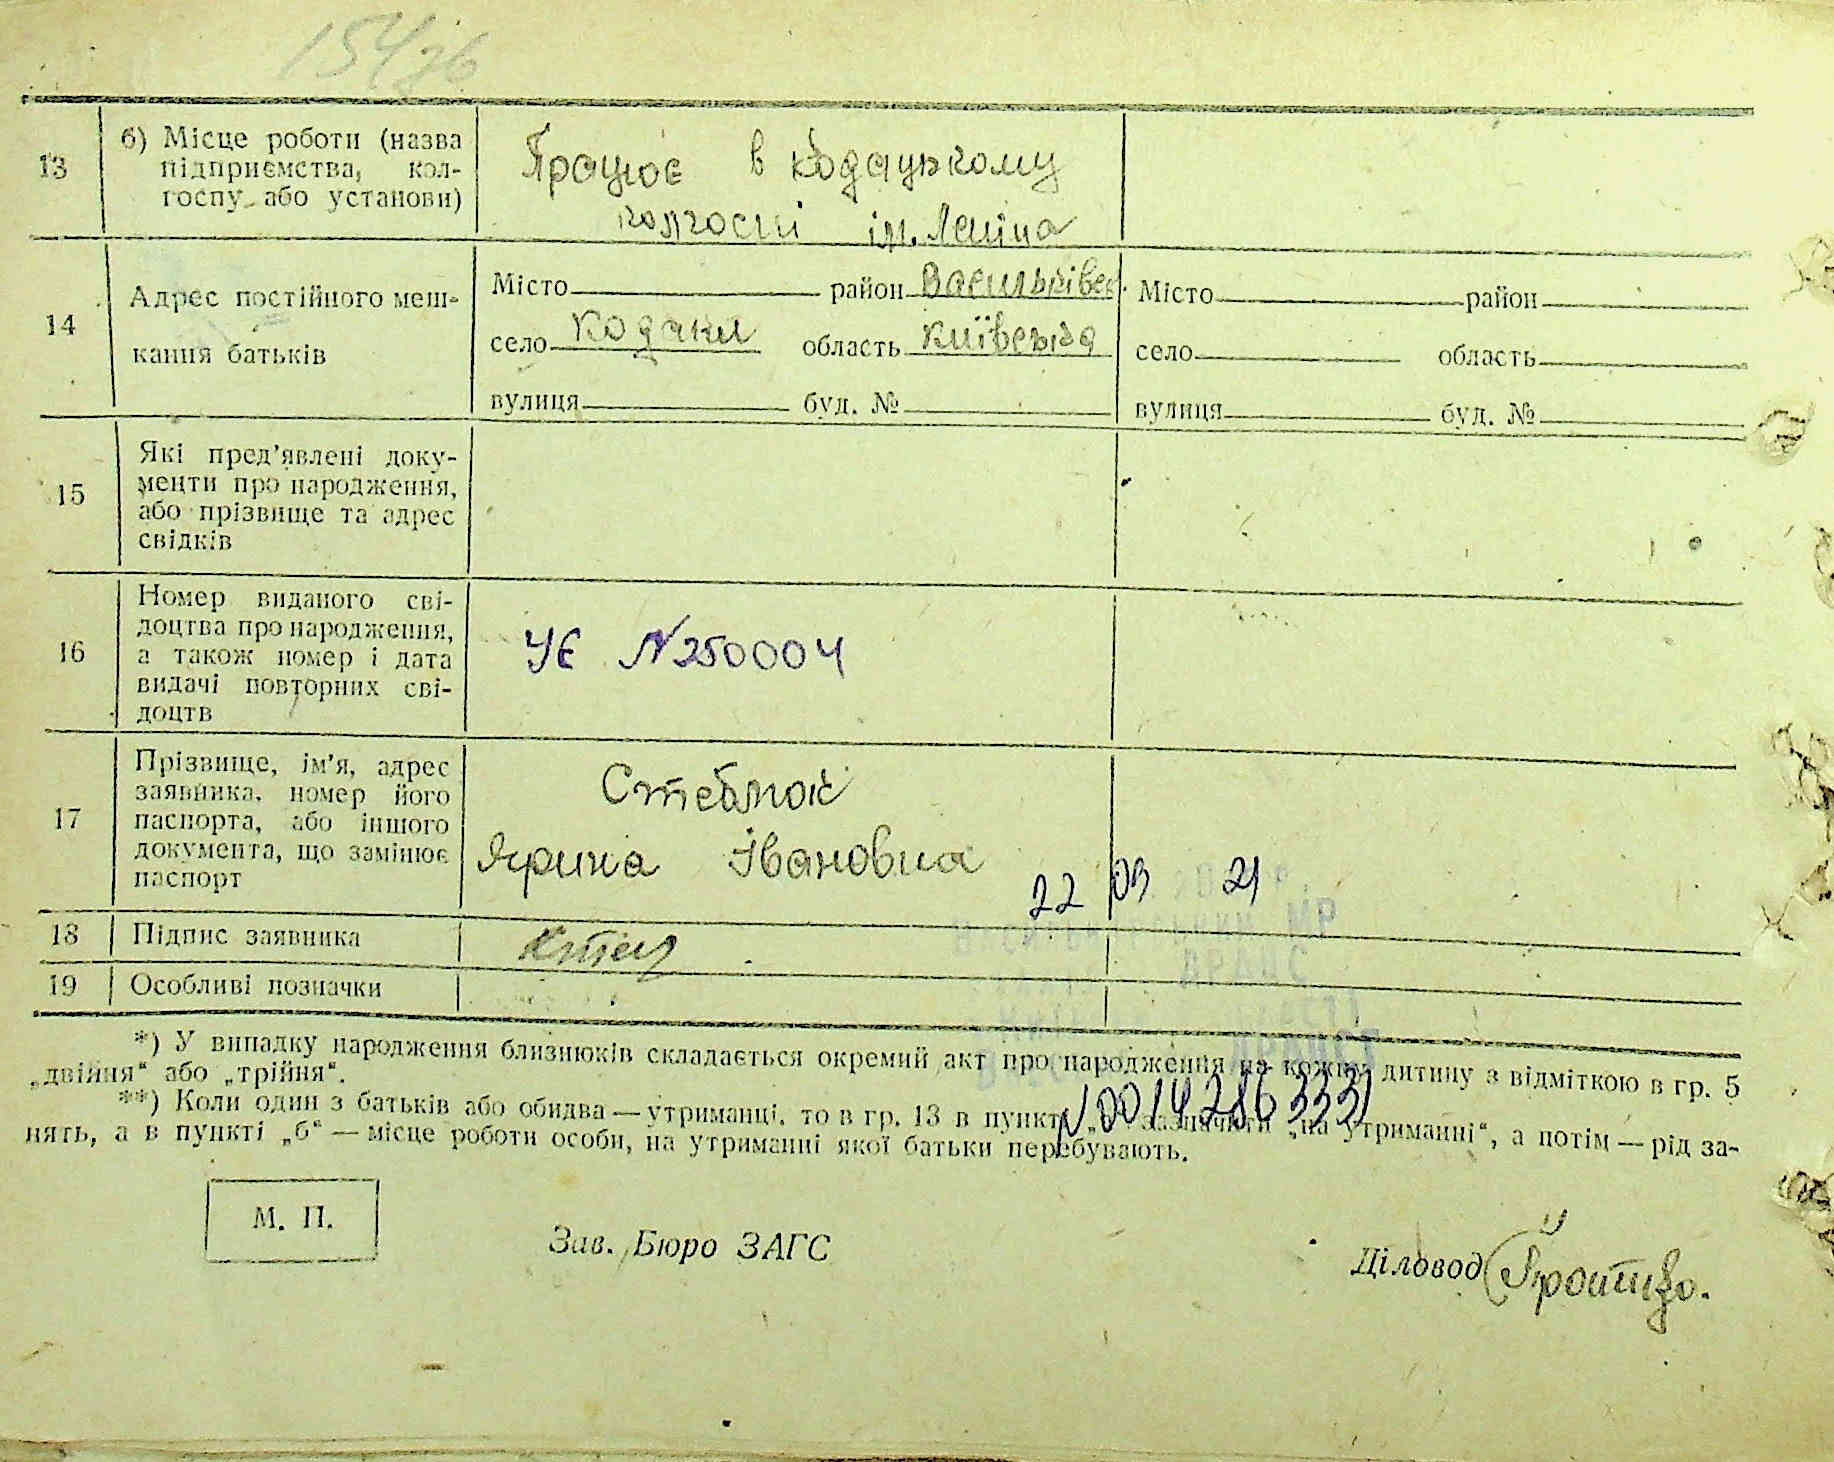 154зв
13
б) Місце роботи (назва
підприємства, кол-
госпу або установи)
Працює в Кодацькому
колгоспі ім. Леніна
14
Адрес постійного меш-
кання батьків
Місто район Васильківс.
село Кодаки область Київська
вулиця буд. №
Місто район
село область
вулиця буд. №
15
Які пред’явлені доку-
менти про народження,
або прізвище та адрес
свідків
16
Номер виданого сві-
доцтва про народження,
а також номер і дата
видачі повторних сві-
доцтв
УЄ № 250004
17
Прізвище, ім’я, адрес
заявника, номер його
паспорта, або іншого
документа, що замінює
паспорт
Стеблюк
Ярина Івановна
22 03 21
18
Підпис заявника
19
Особливі позначки
*) У випадку народження близнюків складається окремий акт про народження на кожну дитину з відміткою в гр. 5
„двійня“ або „трійня“.
N00142863331
**) Коли один з батьків або обидва — утриманці, то в гр. 13 в пункті зазначити „на утриманні“, а потім — рід за-
нять, а в пункті „б“ — місце роботи особи, на утриманні якої батьки перебувають.
М. П.
Зав. Бюро ЗАГС
Діловод